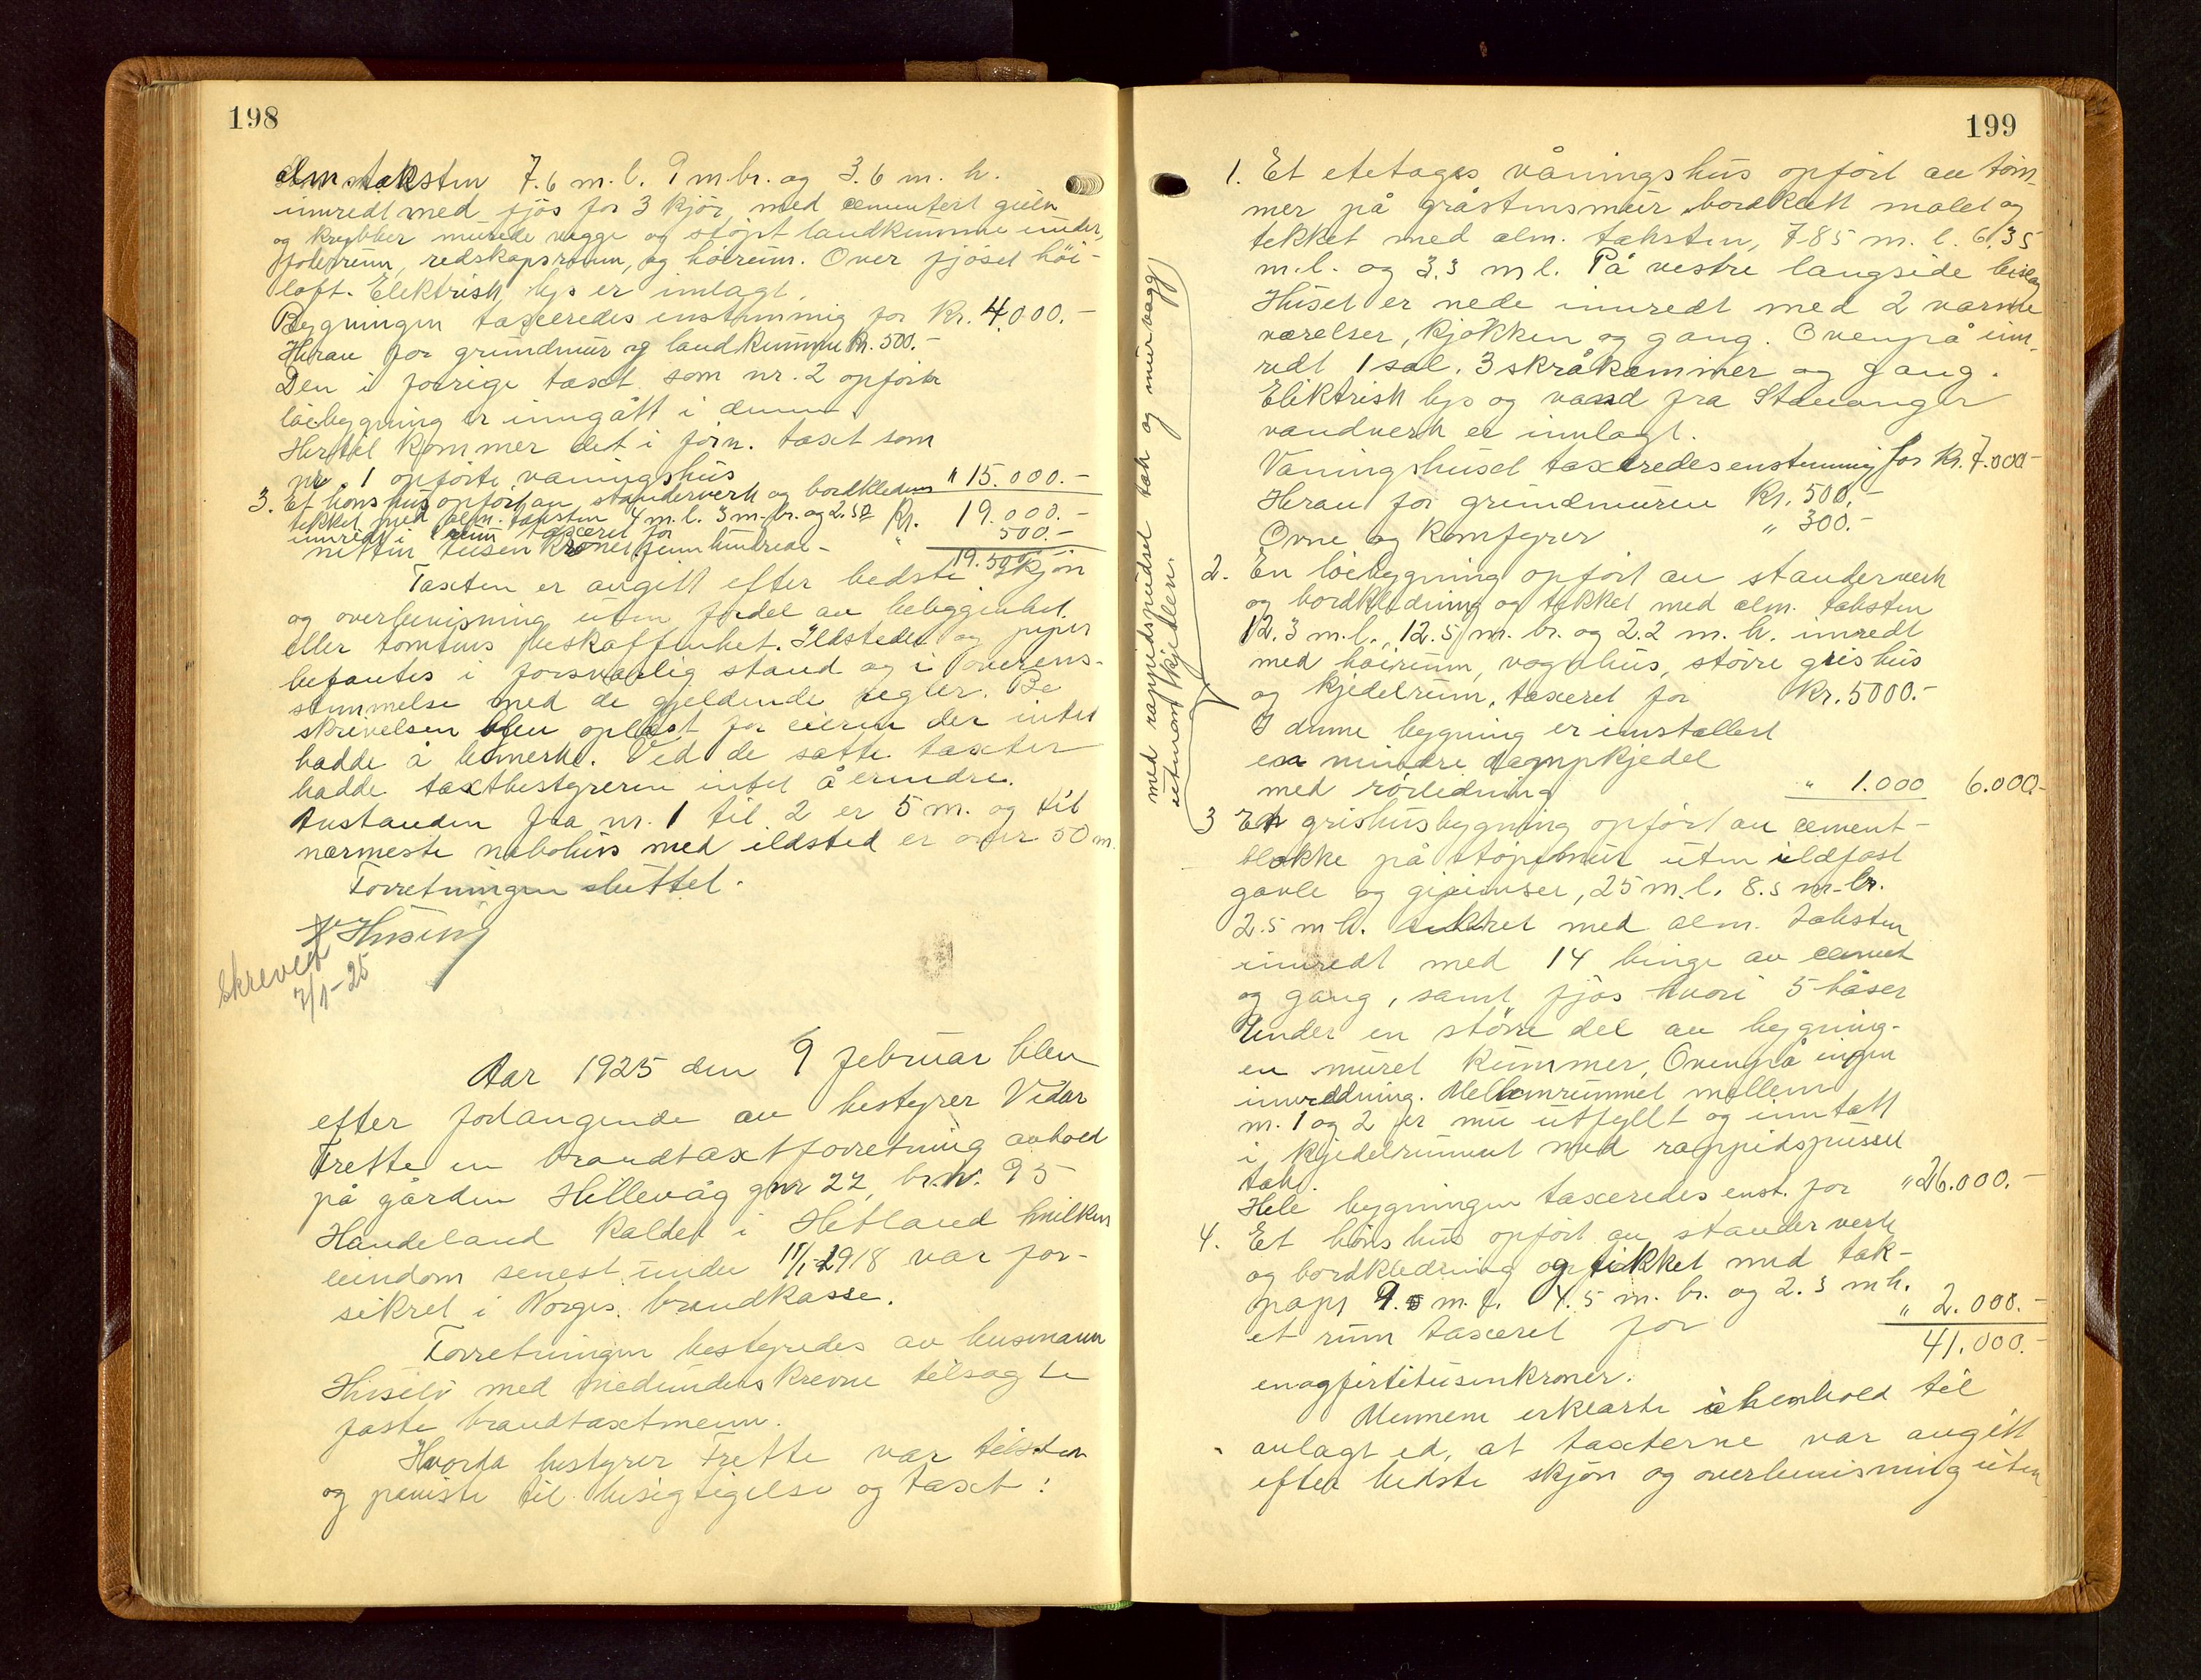 198
alm. taksten 7.6 m. l. 9 m. br. og 3.6 m. h.
innredt med fjös for 3 kjör, med cementert gulv
og krybber murede vegge og stöpt landkumme under,
foderrum, redskapsrum, og höirum. Over fjöset höi-
loft. Elektrisk lys er inlagt.
Bygningen taxeredes enstemmig for Kr. 4.000.-
Herav for grundmur og landkumme Kr. 500.-
Den i forrige taxt som nr. 2 opförte
löebygning er inngått i denne.
Hertil kommer det i förn. taxt som
nr. 1 opförte våningshus " 15.000.-
3. Et hönshus opfört av standerverk og bordkledning
tekket med alm. taksten 4 m. l. 3 m. br. og 2.50 Kr. 19.000.-
innredt i 1 rum taxeret for " 500.-
nitten tusen kroner femhundrede - 19.500
Taxten er avgitt efter bedste skjön
og overbevisning uten fordel av beliggenhet
eller tomtens beskaffenhet. Ildsteder og piper
befantes i forsvarlig stand og i overens-
stemmelse med de gjeldende regler. Be
skrivelsen blev oplæst for eieren der intet
hadde å bemerke. Ved de satte taxter
hadde taxtbestyreren intet å erindre.
Avstanden fra nr. 1 til 2 er 5 m. og til
nærmeste nabohus med ildsted er over 50 m.
Forretningen sluttet.
Husinn
Skrevet
7/1-25
Aar 1925 den 9 februar blev
efter forlangende av bestyrer Vidar
Frette en brandtaxtforretning avhold
på gården Hillevåg gnr 22, br.nr. 95
Handeland kaldet i Hetland hvilken
eiendom senest under 11/1-1918 var for-
sikret i Norges brandkasse.
Forretningen bestyredes av husmann
med medunderskrevne tilsagte
faste brandtaxtmenn.
Hvorda bestyrer Frette var tilstede
og påviste til besigtigelse og taxt:
med rappidspudset tak og murvegg
utenom kjedelen.
199
1. Et etetages våningshus opfört av töm-
mer på gråstensmur bordkledt malet og
tekket med alm. taksten, 7.85 m. l. 6.35
m. l. og 3.3 m l. På vestre langside bislag
Huset er nede innredt med 2 varme
værelser, kjökken og gang. Ovenpå inn-
redt 1 sal. 3 skråkammer og gang.
Elektrisk lys og vand fra Stavanger
vandverk er innlagt.
Våningshuset taxeredes enstemmig for Kr. 7.000-
Herav for grundmuren Kr. 500.-
Ovne og komfyrer " 300.-
2. En löebygning opfört av standerverk
og bordkledning og tekket med alm. taksten
12.3 m. l., 12.5 m. br. og 2.2 m. h. inredt
med höirum, vognhus, större grishus
og kjedelrum, taxeret for Kr. 5000.-
I denne bygning er innstallert
en mindre dampkjedel
med rörledning " 1.000 6.000-
3 En grishusbygning opfört av cement-
blokke på stöpt mur uten ildfast
gavle og gesimser, 25 m. l. 8.5 m. br.
2.5 m h. tekket med alm. taksten
innredt med 14 binge av cement
og gang, samt fjös hvori 5 båser
Under en större del av bygning-
en muret kummer. Ovenpå ingen
innredning. Mellemrummet mellem
nr. 1 og 2 er nu utfyllt og inntatt
i kjedelrummet med rappidspusset
tak.
Hele bygningen taxeredes enst. for " 26.000.-
4. Et hönshus opfört av standerverk
og bordkledning og tekket med tak-
papp 9.5 m. l. 4.5 m. br. og 2.3 m h.
et rum taxeret for " 2.000.-
41.000.-
enogfirtitusenkroner.
Mennene erklærte i henhold til
avlagt ed, at taxterne var avgitt
efter bedste skjön og overbevisning uten